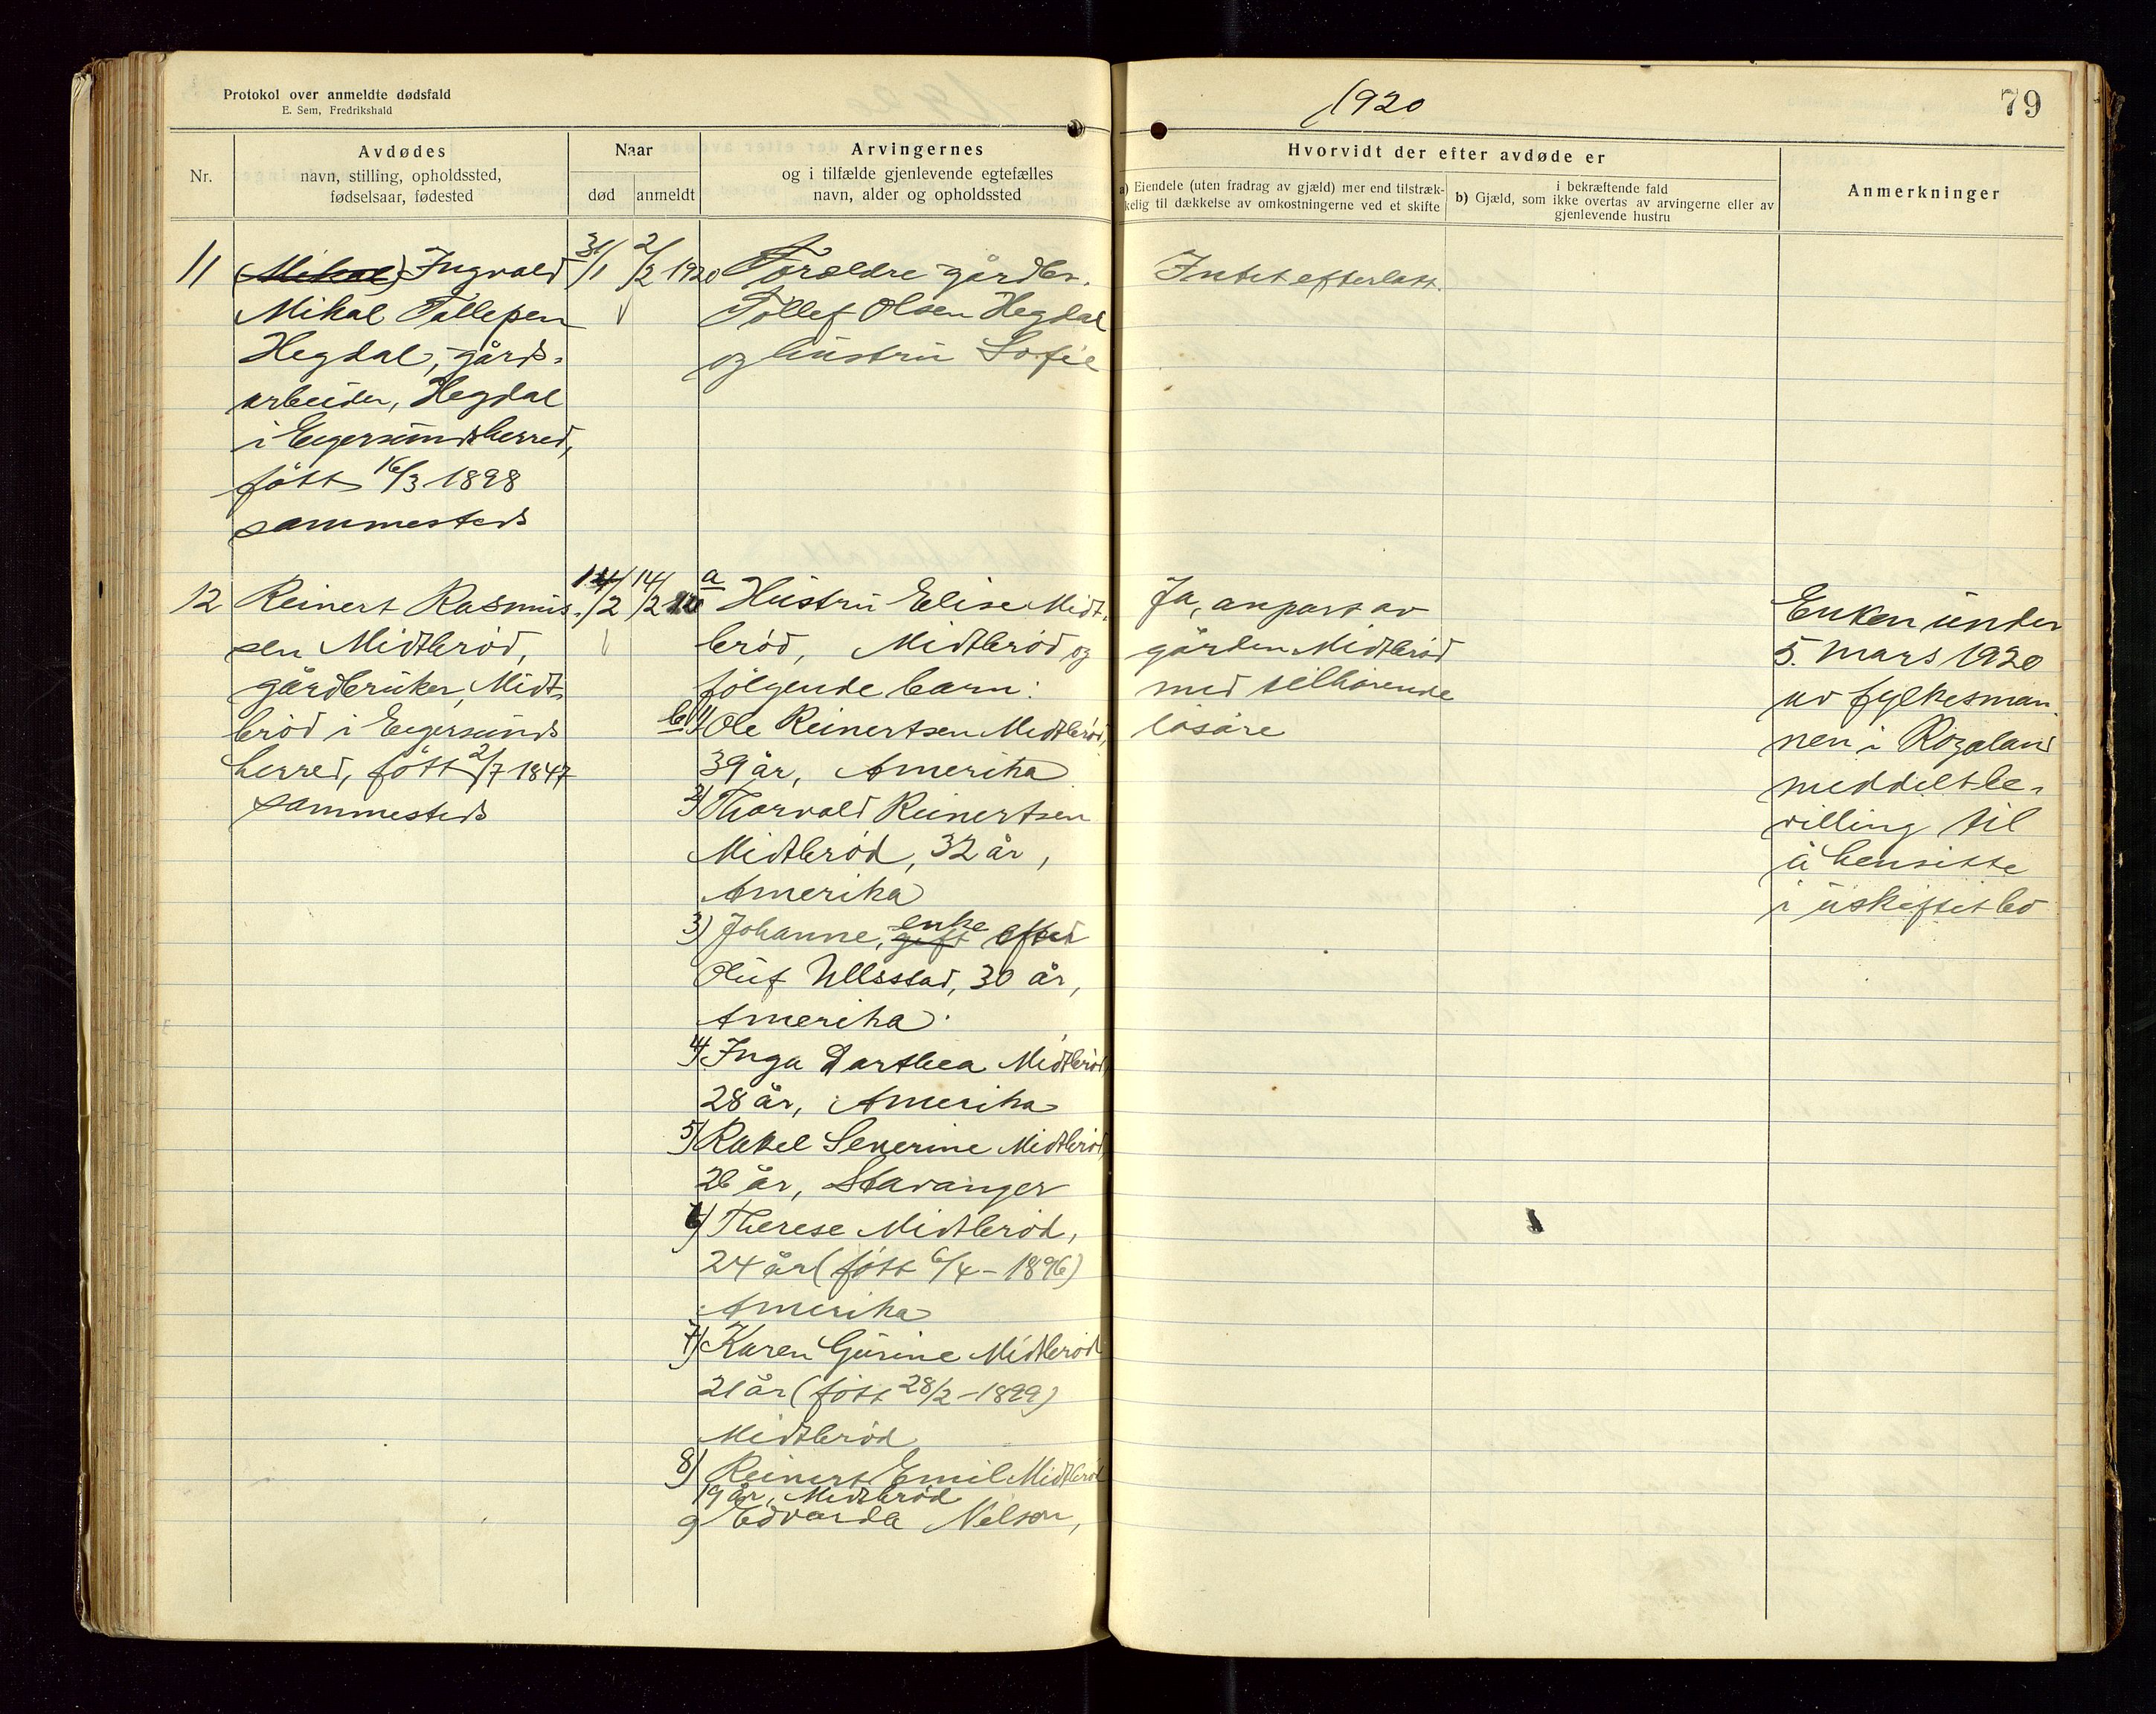 Protokol over anmeldte dødsfald
E. Sem, Fredrikshald
1920
79
Nr.
Avdødes
navn, stilling, opholdssted,
fødselsaar, fødested
Naar
død
anmeldt
Arvingernes
og i tilfælde gjenlevende egtefælles
navn, alder og opholdssted
Hvorvidt der efter avdøde er
a) Eiendele (uten fradrag av gjæld) mer end tilstræk-
kelig til dækkelse av omkostningerne ved et skifte
b) Gjæld, som ikke overtas av arvingerne eller av
i bekræftende fald
gjenlevende hustru
Anmerkninger
11
(Mikal) Ingvald
Mikal Tollefsen
Hegdal, gårds-
arbeider, Hegdal
i Egersundsherred,
født 16/3 1898
sammesteds
31/1
2/2 1920
Forældre gårdbr.
Tollef Olsen Hegdal
og hustru Sofie
Intet efterlatt.
12
Reinert Rasmus-
sen Midtbrød,
gårdbruker, Midt-
brød i Egersunds
herred, født 2/7 1847
sammesteds
14/2
14/2 120
a Hustru Elise Midt-
brød, Midtbrød og
følgende barn:
b 1) Ole Reinertsen Midtbrød,
39 år, Amerika
2) Thorvald Reinertsen
Midtbrød, 32 år,
Amerika
3) Johanne, enke gift efter
Oluf Ullestad, 30 år,
Amerika.
4) Inga Dorthea Midtbrød,
28 år, Amerika
5) Rakel Severine Midtbrød,
26 år, Stavanger
6) Therese Midtbrød,
24 år (født 6/4 - 1896)
Amerika
7) Karen Gurine Midtbrød
21 år (født 28/2 - 1899)
Midtbrød
8) Reinert Emil Midtbrød
19 år, Midtbrød
9 Edvarda Nelson,
Ja, anpart av
gården Midtbrød
med tilhørende
løsøre
Enken under
5. mars 1920
av fylkesman
nen i Rogaland
meddelt be-
villing til
å hensitte
i uskiftet bo